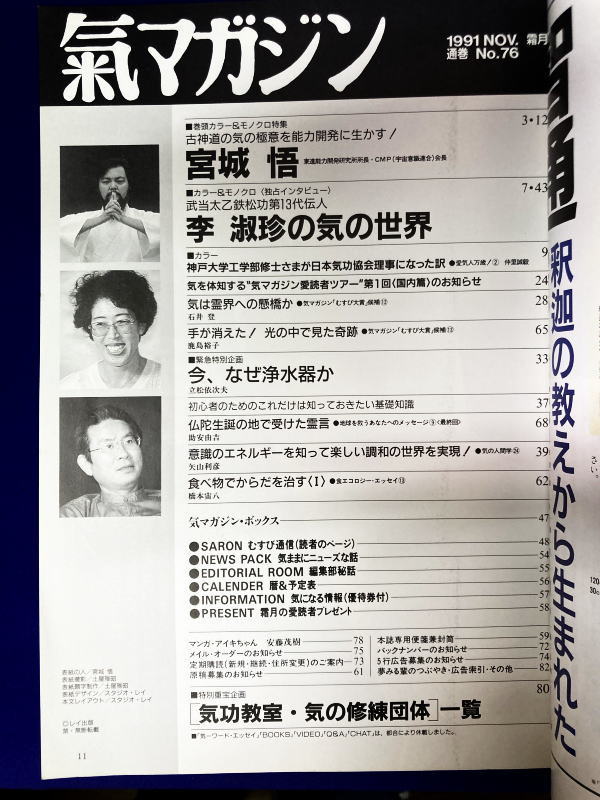 氣マガジン
1991 NOV. 霜月
通巻 No.76
■巻頭カラー&モノクロ特集
古神道の気の極意を能力開発に生かす！ 3・12
宮城 悟 東進能力開発研究所所長・CMP(宇宙意識連合)会長
■カラー&モノクロ〈独占インタビュー〉
武当太乙鉄松功第13代伝人 7・43
李 淑珍の気の世界
■カラー
神戸大学工学部修士さまが日本気功協会理事になった訳 ●愛気人万歳！② 仲里誠毅 9
気を体知する“気マガジン愛読者ツアー”第1回〈国内篇〉のお知らせ 24
気は霊界への懸橋か ●気マガジン「むすび大賞」候補⑫ 28
石井 登
手が消えた！ 光の中で見た奇跡 ●気マガジン「むすび大賞」候補⑬ 65
鹿島裕子
■緊急特別企画 33
今、なぜ浄水器か
立松依次夫
初心者のためのこれだけは知っておきたい基礎知識 37
仏陀生誕の地で受けた霊言 ●地球を救うあなたへのメッセージ⑨〈最終回〉 68
助安由吉
意識のエネルギーを知って楽しい調和の世界を実現！ ●気の人間学㉔ 39
矢山利彦
食べ物でからだを治す〈I〉 ●食エコロジー・エッセイ⑬ 62
橋本宙八
気マガジン・ボックス 47
●SARON むすび通信(読者のページ) 48
●NEWS PACK 気ままにニューズな話 54
●EDITORIAL ROOM 編集部秘話 55
●CALENDER 暦&予定表 56
●INFORMATION 気になる情報(優待券付) 57
●PRESENT 霜月の愛読者プレゼント 58
マンガ・アイキちゃん 安藤茂樹 78
メイル・オーダーのお知らせ 75
定期購読(新規・継続・住所変更)のご案内 73
原稿募集のお知らせ 61
本誌専用便箋兼封筒 59
バックナンバーのお知らせ 72
5行広告募集のお知らせ 74
夢みる輩のつぶやき・広告索引・その他 82
■特別重宝企画 80
[気功教室・気の修練団体]一覧
■「気ーワード・エッセイ」「BOOKS」「VIDEO」「Q&A」「CHAT」は、都合により休載しました。
表紙の人／宮城 悟
表紙撮影／土屋雅詔
表紙題字制作／土屋雅詔
表紙デザイン／スタジオ・レイ
本文レイアウト／スタジオ・レイ
©レイ出版
禁・無断転載
11
釈迦の教えから生まれた
さい。
120
30